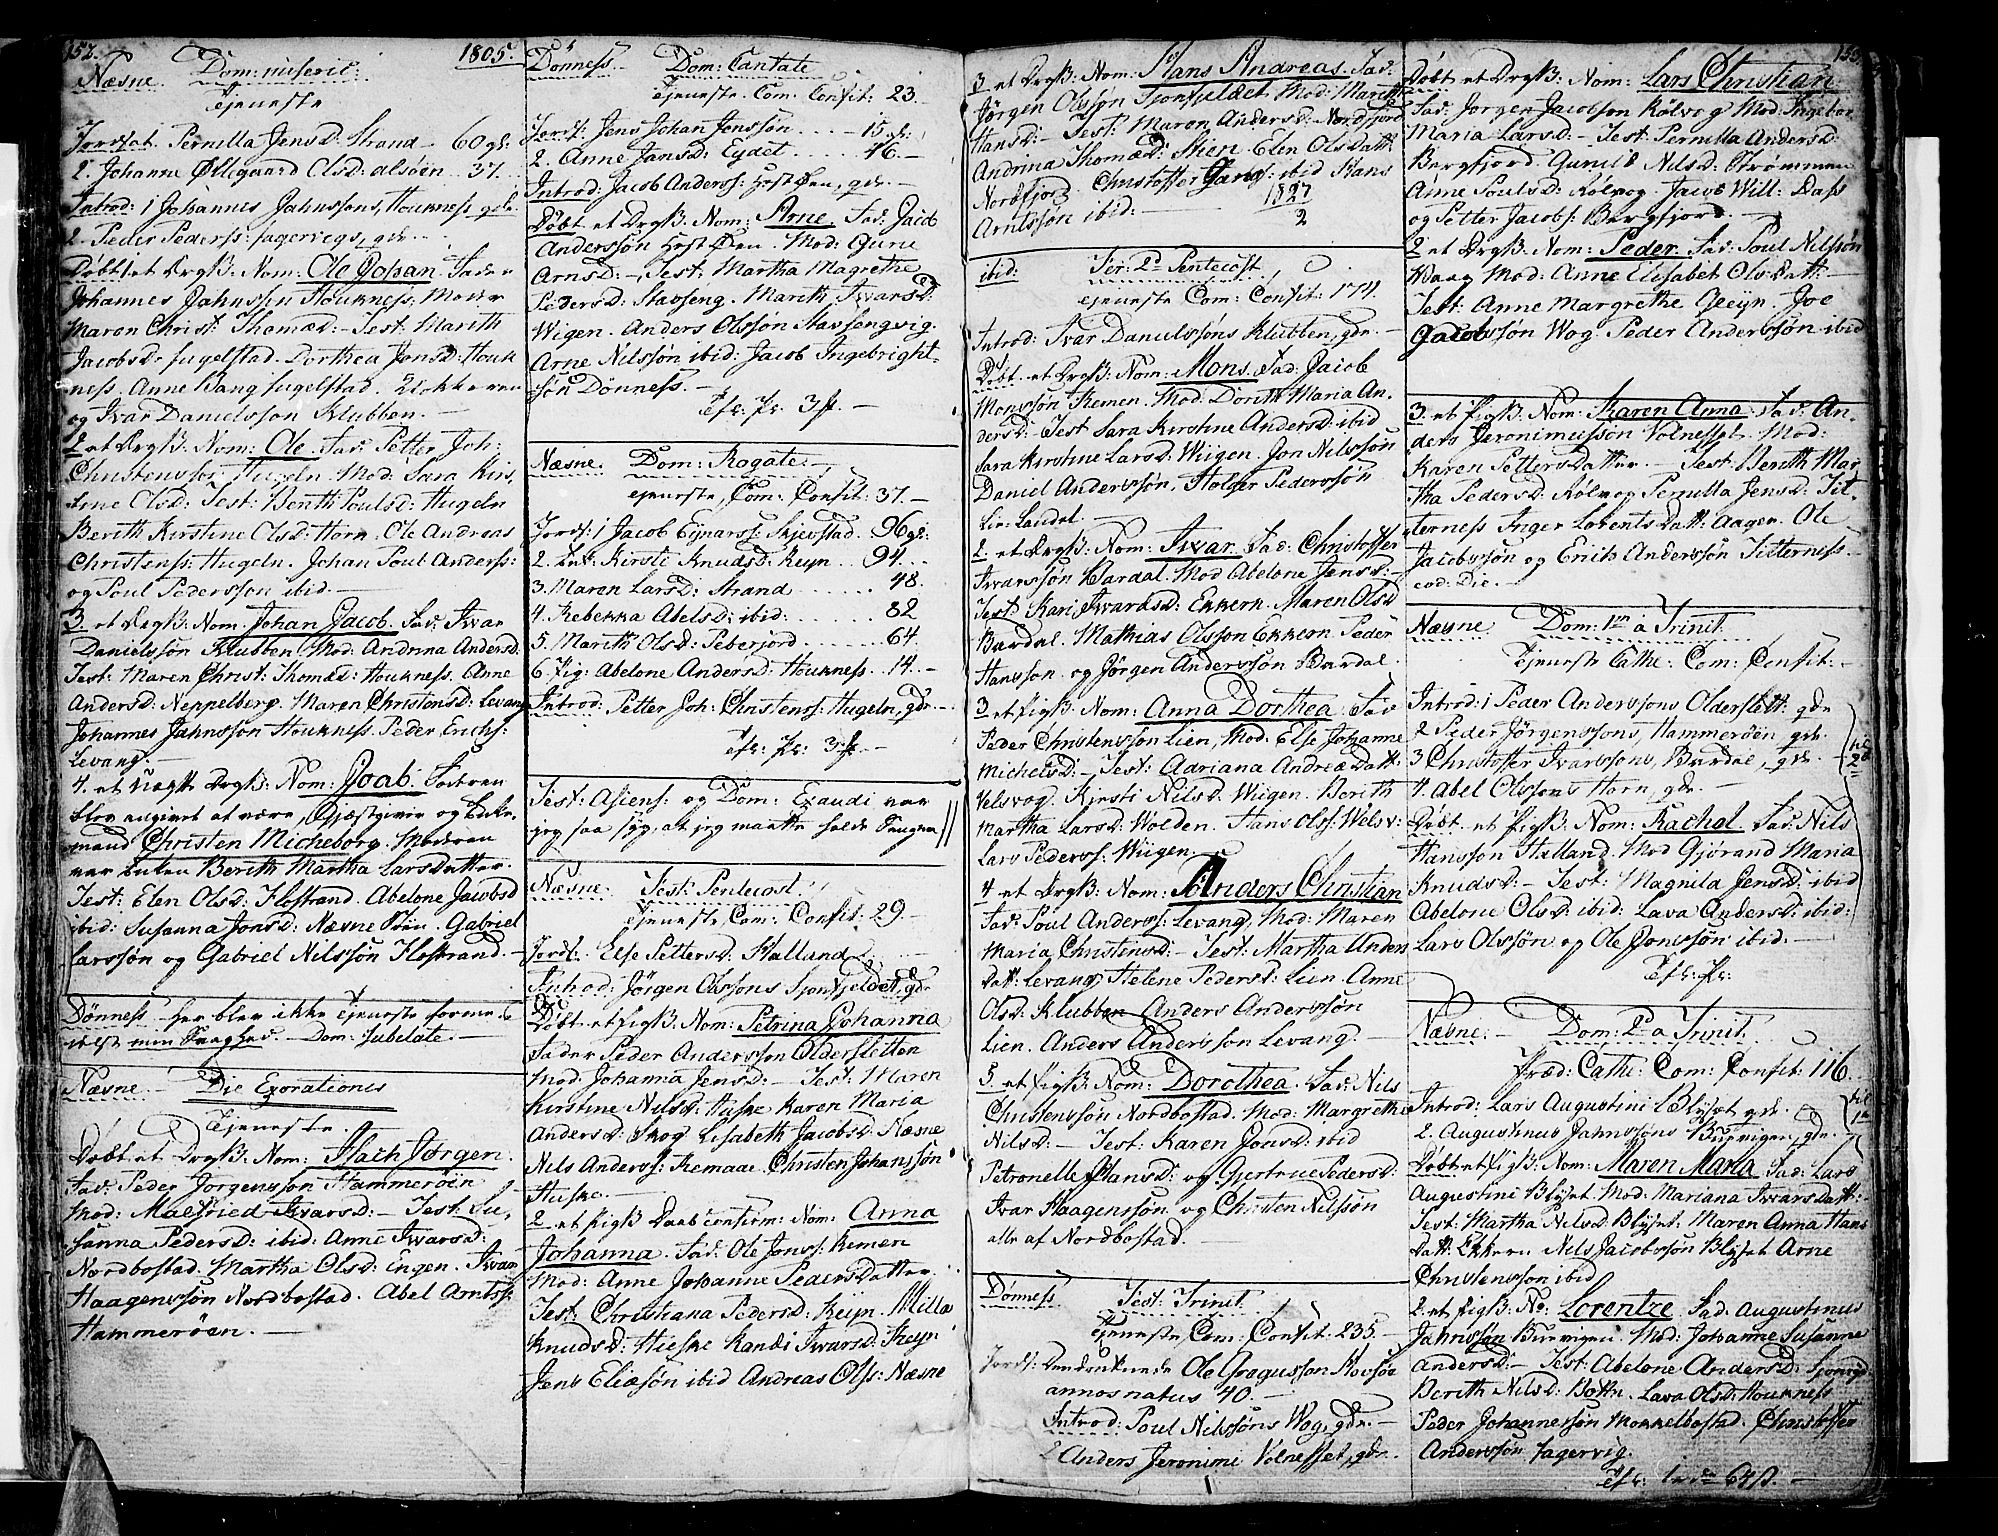 152.
1805.
Næsne. Dom: miseric:
Tjeneste
Jordf: at Pernilla Jensd: Strand - 60 gl:
2. Johanne Øllegaard Olsd: alsöen .. 37.
Introd: 1 Johannes Jahnssöns, Houkness gdr.
2. Peder Pederss: fagervigs, gdr.
Döbt 1 et Drgß: Nom: Ole Johan. Fader
Johannes Jahnssön Houkness. Moder
Maren Christ: Thomæd: - Test: Marith
Jacobsd: fugelstad. Dorthea Jonsd: Houk
ness. Anne Bang fugelstad. Klokkeren
og Ivar Danielssön Klubben. -
2 et Drgß: Nom: Ole. Fad: Petter Joh:
Christenssön Hugeln. Mod: Sara Kirs,
tine Olsd: Test: Berith Poulsd: Hugeln
Berith Kirstine Olsd: Horn. Ole Andreas
Christenss: Hugeln. Johan Poul Anderss:
og Poul Pederssön ibid. -
3. et Drgß: Nom: Johan Jacob. Fad: Ivar
Danielssön Klubben. Mod: Andrina Andersd.
Test: Maren Christ: Thomæd: Houkness. Anne
Andersd: Neppelberg. Maren Christensd: Levang
Johannes Jahnssön Houkness. Peder Erichs:
Levang. -
4. et Uægte Drgß: Nom: Joab. Faderen
blev angivet at være, Gjæstgiver og Enke,
mand Christen Micheborg. Moderen
var Enken Berith Martha Larsdatter.
Test: Elen Olsd: Flostrand. Abelone Jacobsd
ibid: Susanna Jonsd: Næsne Öen. Gabriel
Larssön og Gabriel Nilssön Flostrand. -
Dönness. Her blev ikke Tjeneste forme,
delst min Svaghed. - Dom: Jubelate. -
Næsne. - Die Exorationis
Tjeneste.
Döbt et Drgß: Nom: Hach Jørgen.
Fad: Peder Jörgenssön Hammeröen
Mod: Malfried Ivarsd: - Test: Su,
sanna Pedersd: ibid: Anne Ivarsd:
Nordbostad. Martha Olsd: Engen. Ivar
Haagenssön Nordbostad. Abel Arntss:
Hammeröen. -
Dönness Dom: Cantate
Tjeneste. Com. Confit: 23.
Jordf: Jens Johan Jenssön .... - 15 gl:
2. Anne Jansd: Eydet ..... - 46. -
Introd: Jacob Anderss: Hest Öen, gdr. -
Döbt et Drgß: Nom: Arne. Fad: Jacob
Anderssön Hest Öen. Mod: Gune
Arnsd: - Test: Martha Magrethe
Pedersd: Stavseng. Marith Ivarsd:
Wigen. Anders Olssön Stavsengvig.
Arne Nilssön ibid: Jacob Ingebright-
sön Dönness. -
Næsne. Dom: Rogate. -
Tjeneste, Com: Confit: 37. -
Jordf: 1 Jacob Eynarss: Skjevstad. 96 gl:
2. Enk: Kirsti Knudsd: Reyn .. 94 ...
3. Maren Larsd: Strand ...... 48.
4. Rebekka Abelsd: ibid: ...... 82
5. Marith Olsd: Seberjord .... - 64
6. Pig: Abelone Andersd: Houkness .. 14. -
Introd: Petter Joh: Christens: Hugeln, gdr -
Fest: Asiens: og Dom: Exaudi var
jeg saa syg, at jeg maatte holde Sengen //
Næsne. Fest: Pentecost.
Tjeneste Com: Confit: 29. -
Jordf: Else Pettersd: Halland.
Introd: Jörgen Olssöns Sjonfjeldet, gdr
Döbt et figß: Nom: Petrina Johanna
Fader Peder Anderssön Oldersletten
Mod: Johanna Jensd: - Test: Maren
Kirstine Nilsd: Huske Karen Maria
Andersd: Skog Lisabeth Jacobsd Næsne
Nils Anderss: Remaae. Christen Johanssön
Huske. -
2 et figß Daab confirm: Nom: Anna
Johanna. Fad: Ole Jonss: Remen
Mod: Anne Johanne Pedersdatter.
Test: Christiana Pedersd: Reyn. Milla
Knudsd: Hieske Randi Ivarsd: Reyn
Jens Eliæsön ibid Andreas Olss: Næsne
3 et Drgß: Nom: Hans Andreas. Fad:
Jörgen Olssön Sjonfjeldet Mod: Marith
Hansd: - Test: Maren Andersd: Nordfjord
Andrina Thomæd: Skien. Elen Olsdatt:
Nordfjord. Christoffer Gangs: ibid Hans
Arntssön ibid: -
1827
2
ibid: Fer: 2da Pentecost,
Tjeneste Com: Confit: 174.
Introd: Ivar Danielssöns Klubben, gdr. -
Döbt. et Drgß: Nom: Mons. Fad: Jacob
Monssön Remen. Mod: Dorith Maria An,
dersd: - Test Sara Kirstine Andersd: ibid
Sara Kirstine Larsd: Wiigen. Jon Nilssön
Daniel Anderssön, Holger Pederssön
2. et Drgß: Nom: Ivar. Fad: Christoffer
Ivarssön Bardal. Mod Abelone Jensd: -
Test Kari Ivarsd: Ekkern. Maren Olsd
Bardal. Mathias Olsson Ekkern Peder
Hanssön og Jörgen Anderssön Bardal.
3 et figß: Nom: Anna Dorthea. Fad
Peder Christenssön Lien, Mod: Else Johanne
Michelsd: - Test: Adriana Andreædatt.
Velsvog. Kirsti Nilsd: Wiigen. Berith
Martha Larsd: Wolden. Hans Olss: Welsv:
Lars Pederss: Wiigen.
4 et Drgß: Nom: Anders Christian
Fad: Poul Anderss: Levang, Mod: Maren
Maria Christensd: - Test: Martha Anders
Datt: Levang, Helene Pedersd: Lien. Anne
Olsd: Klubben Anders Anderssön
Lien. Anders Anderssön Levang. -
5. et figß: Nom: Dorothea. Fad: Nils
Christenssön Nordbostad. Mod: Margrethe
Nilsd: - Test: Karen Jonsd: ibid
Petronelle Hansd: og Gjertrue Pedersd:
Ivar Haagenssön og Christen Nilssön
alle af Nordbostad. -
Dønness Fest: Trinit.
Tjeneste Com: Confit: 235. -
Jordf: Ole
annos natus 40. -
Introd: Poul Nilssöns Wog, gdr. -
2 Anders Jeronimi Volnesset, gdr.
153
Döbt et Drgß: Nom: Lars Christian
Fad: Jörgen Jacobson Rölvog Mod Ingebor
Maria Larsd: - Test: Pernilla Andersd:
Bergfjord Gunild Nilsd: Strömmen
Anne Poulsd: Rölvog. Jacob Will: Dass
og Petter Jacobs: Bergfjord. -
2 et Drgß: Nom: Peder. Fad: Poul Nilssön
Waag Mod: Anne Elisabet Olsdatt: -
Test: Anne Margrethe Qeijn. Joe
Jacobssön Wog. Peder Anderssön ibid
3. et figß: Nom: Karen Anna. Fad: An,
ders Jeronimussön Volnesset. Mod:
Karen Pettersdatter. - Test: Berith Mar,
tha Pedersd: Rölvog Pernilla Jensd: Tit,
terness Inger Lorentsdatt: Aagen. Ole
Jacobssön og Erich Anderssön Titterness.
eod: Die. -
Næsne. Dom: 1ma a Trinit.
Tjeneste Cathe: Com: Confit: -
Introd: 1 Peder Anderssöns Olderslett: gdr
2 Peder Jörgenssöns, Hammeröen gdr.
3 Christoffer Ivarssöns, Bardal, gdr.
4. Abel Olssöns Horn, gdr. -
til 2
Döbt: et figß: Nom: Rachel. Fad: Nils
Hanssön Halland. Mod Gjörand Maria
Knudsd: - Test: Magnila Jensd: ibid
Abelone Olsd: ibid: Lava Andersd: ibid:
Lars Olssön og Ole Jonssön ibid: -
Næsne: - Dom: 2da a Trinit.
Præd: Cathe: Com: Confit: 116.
Introd: Lars Augustini Blyset gdr.
2. Augustinus Jahnssöns Burvigen, gdr.
til 1
Döbt et figß: Nom: Maren Maria. Fad: Lars
Augustini Blyset Mod: Mariana Ivarsdatt:
Test: Martha Nilsd: Blyset. Maren Anna Hans
Datt: Ekkern Nils Jacobssön Blyset Arne
Christenssön ibid
2. et figß: No: Lorentze. Fad: Augustinus
Jahnssön Burvigen. Mod: Johanne Susanne
Andersd: - Test: Abelone Andersd:
Berith Nilsd: Botn. Lava Olsd: Houkness
Peder Johannessön Mokkelbostad. Christoffer
Anderssön Fagervig.